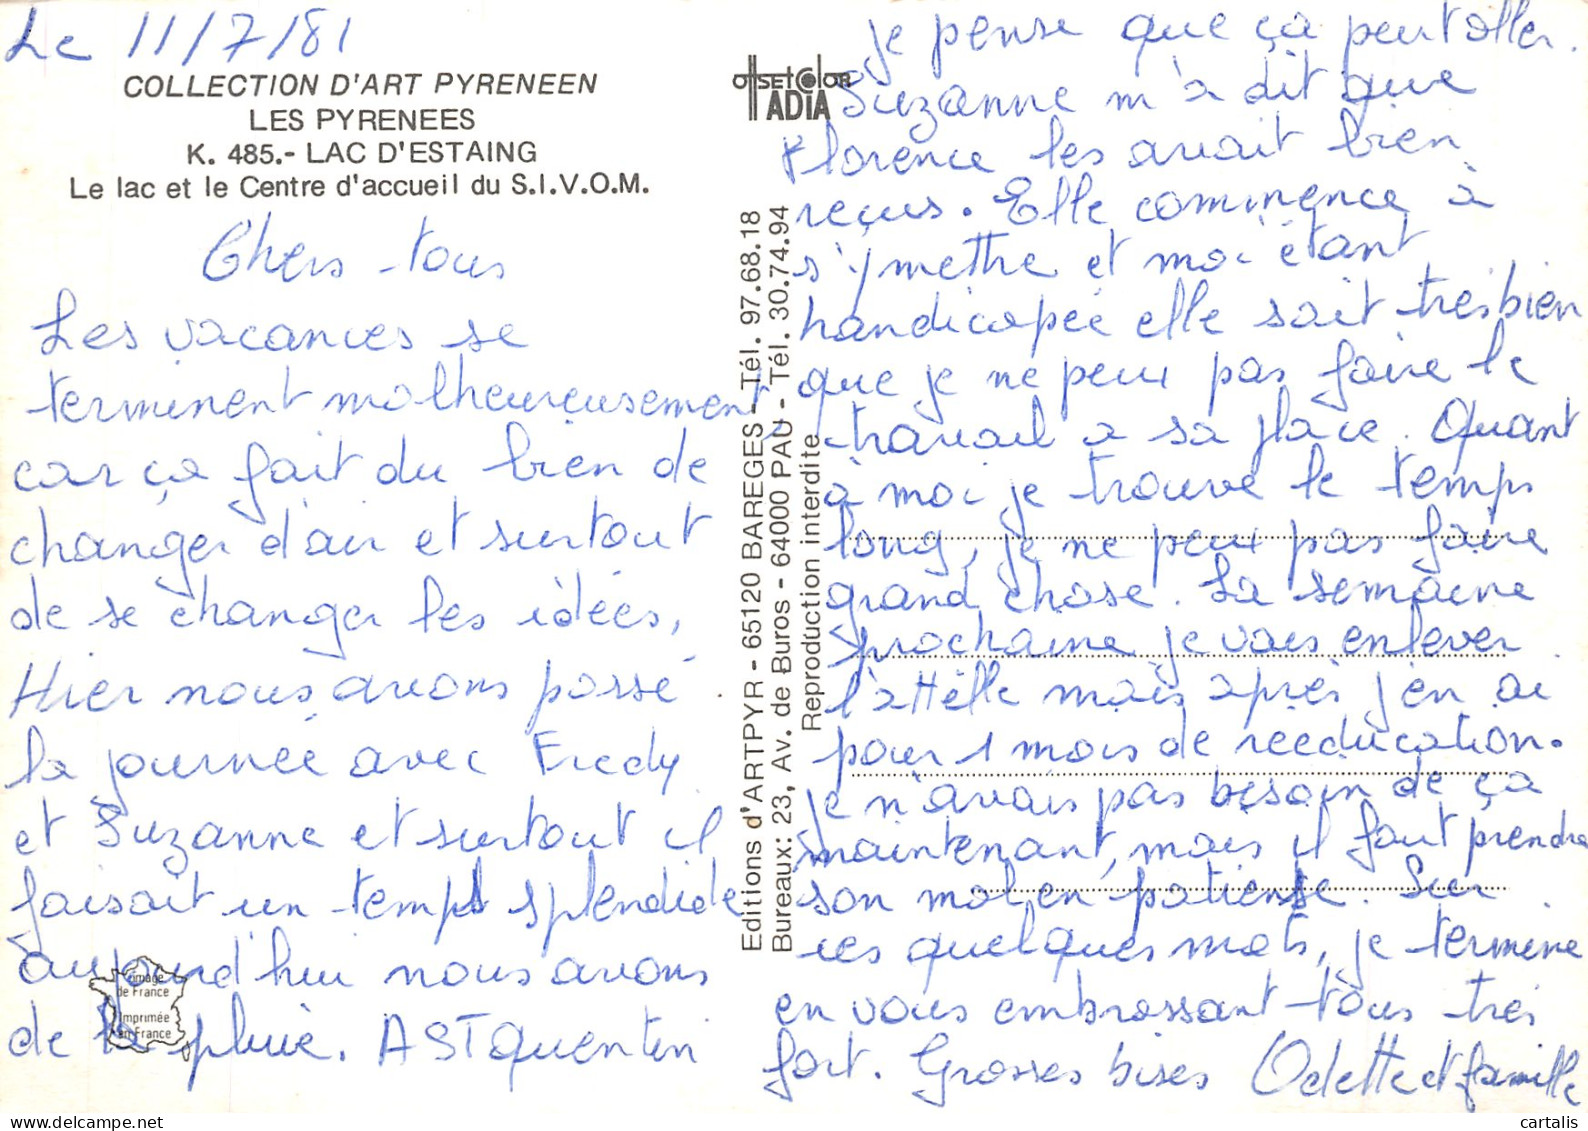 Le 11/7/81
COLLECTION D'ART PYRENEEN
LES PYRENEES
K. 485.- LAC D'ESTAING
Le lac et le Centre d'accueil du S.I.V.O.M.
Chers tous
Les vacances se
terminent malheureusement,
car ça fait du bien de
changer d'air et surtout
de se changer les idées,
Hier nous avons passé
la journée avec Fredy
et Suzanne et surtout il
faisait un temps splendide
aujourd'hui nous avons
de la pluie. A St Quentin
image
de France
Imprimée
en France
offset color
ADIA
Editions d'ARTPYR - 65120 BAREGES - Tél. 97.68.18
Bureaux: 23, Av. de Buros - 64000 PAU - Tél. 30.74.94
Reproduction interdite
je pense que ça peut aller.
Suzanne m'a dit que
Florence les avait bien
reçus. Elle commence à
s'y mettre et moi étant
handicapée elle sait très bien
que je ne peux pas faire le
travail a sa place. Quant
à moi je trouve le temps
long, je ne peux pas faire
grand chose. La semaine
prochaine je vais enlever
l'attelle mais après j'en ai
pour 1 mois de rééducation.
je n'avais pas besoin de ça
maintenant, mais il faut prendre
son mal en patiense. Sur
ces quelques mots, je termine
en vous embrassant tous très
fort. Grosses bises Odette et famille
cartalis